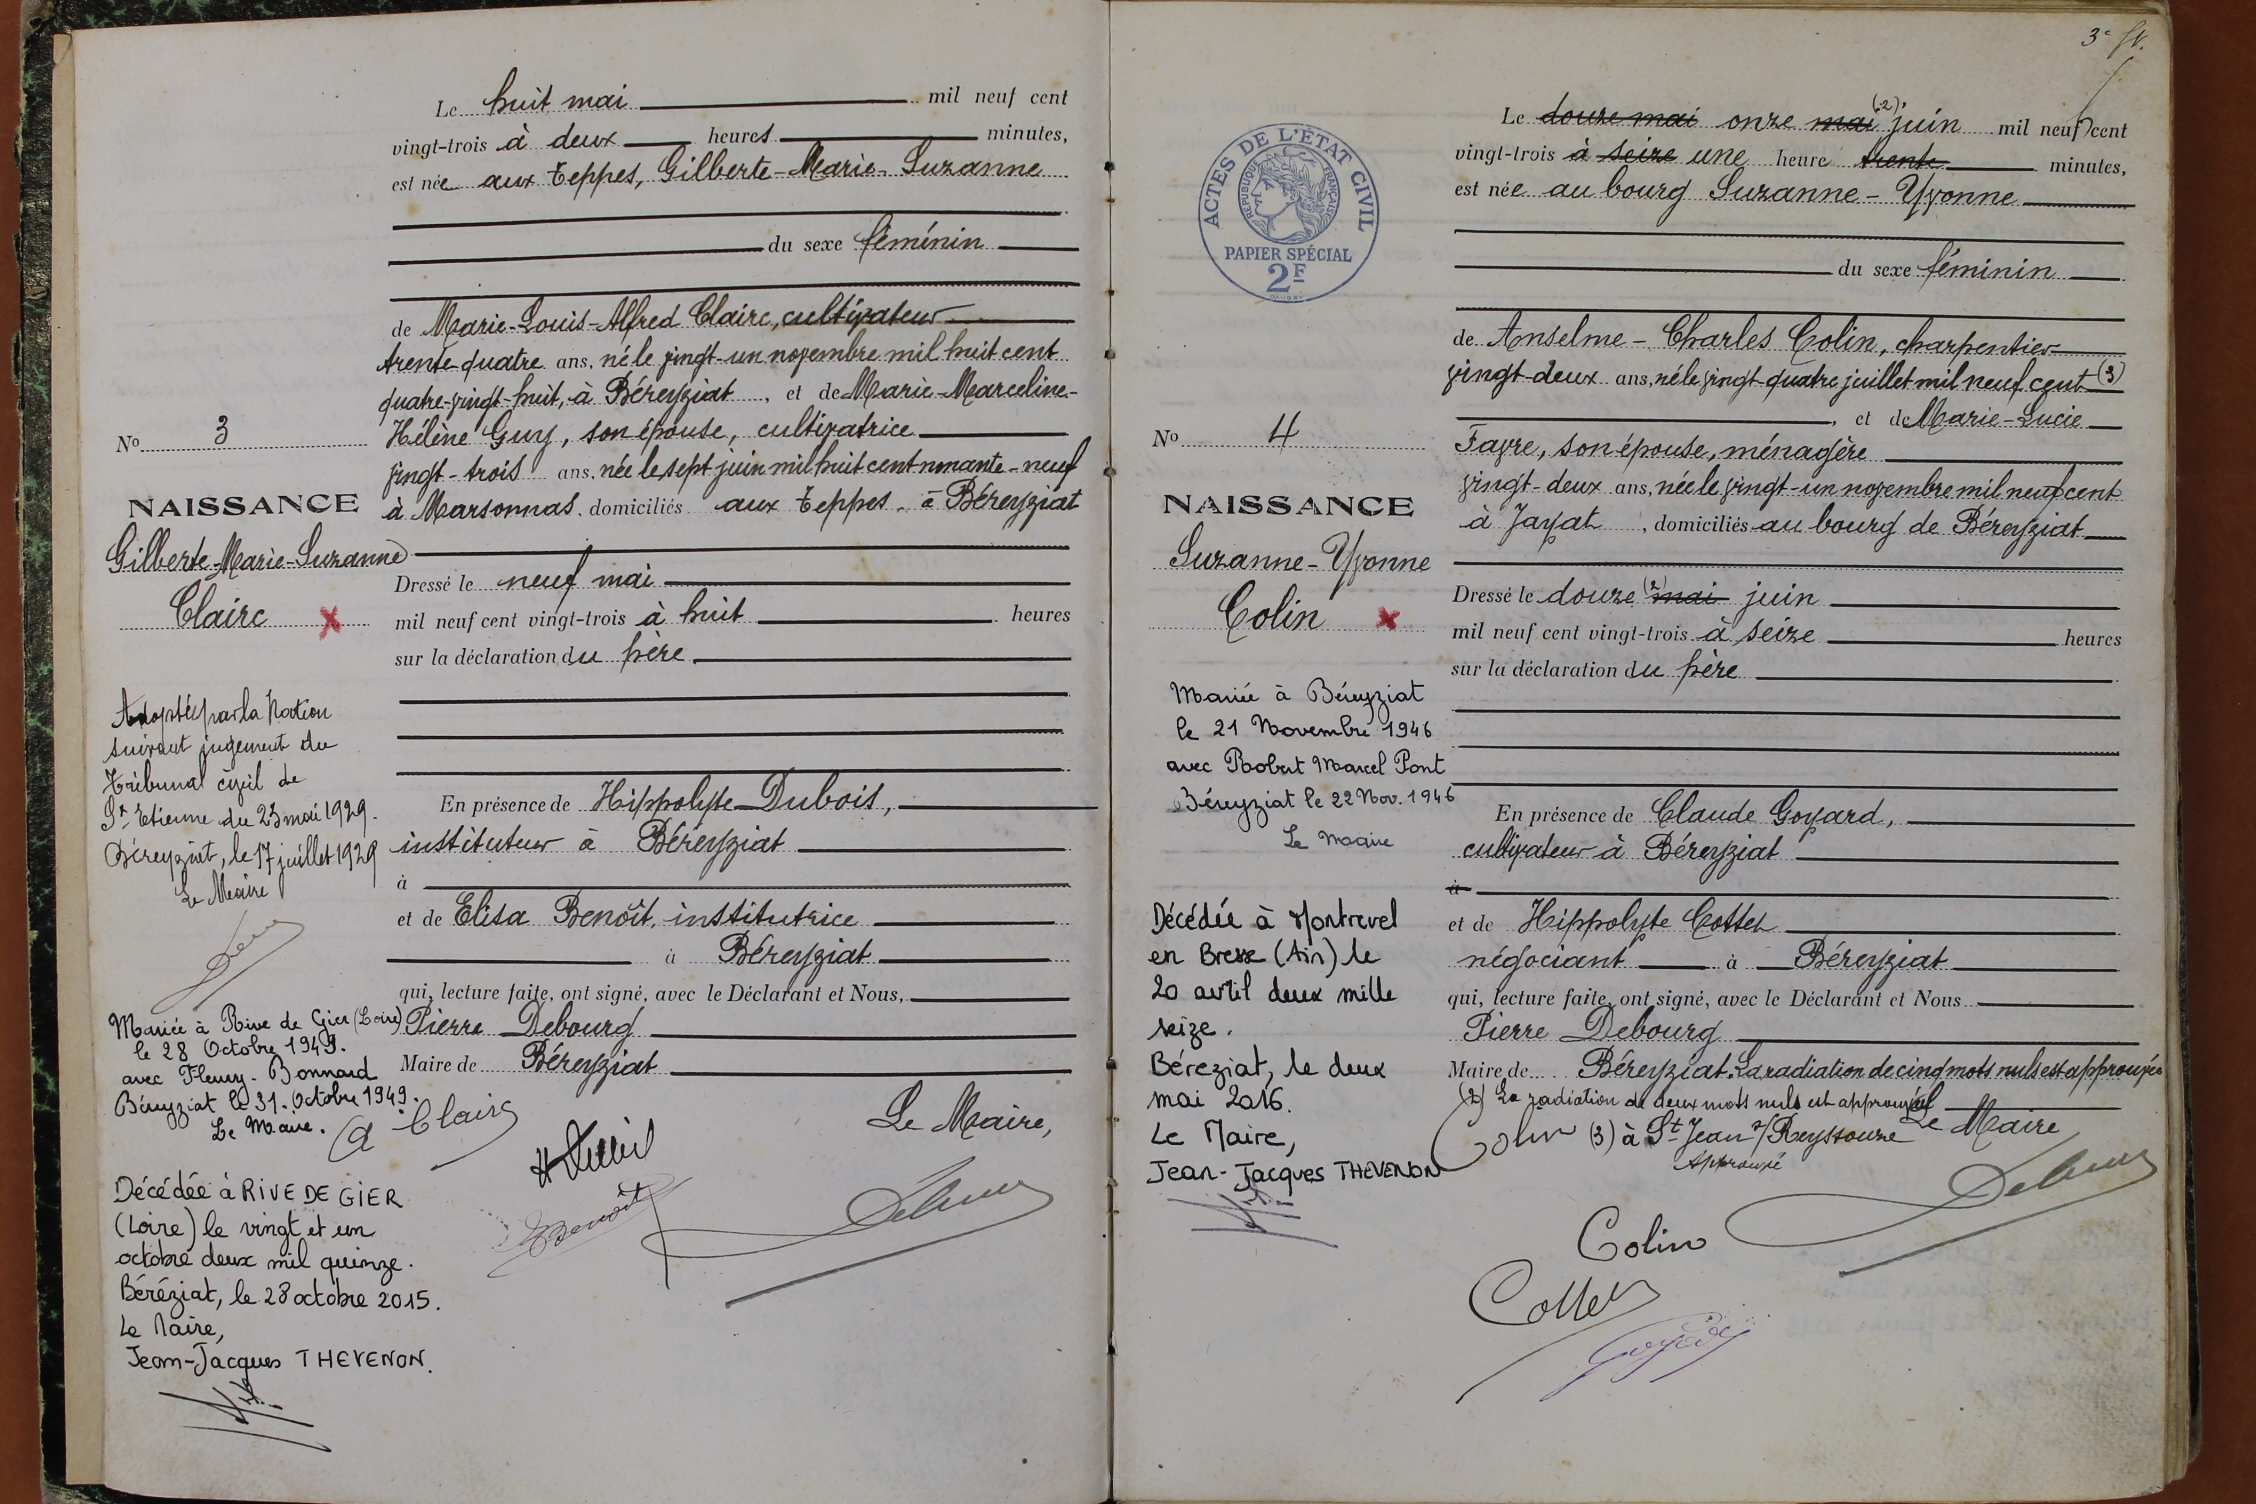 Le huit mai mil neuf cent
vingt-trois à deux heures minutes,
est née aux Teppes, Gilberte-Marie-Suzanne
du sexe féminin
de Marie-Louis-Alfred Claire, cultivateur
trente-quatre ans, né le vingt-un novembre mil huit cent
quatre-vingt-huit, à Béreyziat, et de Marie-Marceline-
Hélène Guy, son épouse, cultivatrice
vingt-trois ans, née le sept juin mil huit cent nonante-neuf
à Marsonnas, domiciliés aux Teppes, à Béreyziat
Dressé le neuf mai
mil neuf cent vingt-trois à huit heures
sur la déclaration du père
En présence de Hippolyte Dubois,
instituteur à Béreyziat
à
et de Elisa Benoît, institutrice
à Béreyziat
qui, lecture faite, ont signé, avec le Déclarant et Nous,
Pierre Debourg
Maire de Béreyziat
Le Maire,
A Claire
EBenoît
No 3
NAISSANCE
Gilberte-Marie-Suzanne
Claire
Adoptée par la Nation
suivant jugement du
Tribunal civil de
St-Etienne du 23 mai 1929.
Béreyziat, le 17 juillet 1929
Le Maire
Mariée à Rive de Gier (Loire)
le 28 Octobre 1949.
avec Fleury. Bonnard
Béreyziat le 31. Octobre 1949.
Le Maire.
Décédée à RIVE DE GIER
(Loire) le vingt et un
octobre deux mil quinze.
Béréziat, le 28 octobre 2015.
Le Maire,
Jean-Jacques THEVENON.
3e
ACTES DE L'ÉTAT CIVIL
RÉPUBLIQUE FRANÇAISE
PAPIER SPÉCIAL
2F
Le douze mai onze mai (2) juin mil neuf cent
vingt-trois à seize une heure trente minutes,
est née au bourg Suzanne-Yvonne
du sexe féminin
de Anselme-Charles Colin, charpentier
vingt-deux ans, né le vingt-quatre juillet mil neuf cent (3)
, et de Marie-Lucie
Favre, son épouse, ménagère
vingt-deux ans, née le vingt-un novembre mil neuf cent
à Jayat, domiciliés au bourg de Béreyziat
Dressé le douze (2) mai juin
mil neuf cent vingt-trois à seize heures
sur la déclaration du père
En présence de Claude Goyard,
cultivateur à Béreyziat
à
et de Hippolyte Cottet
négociant à Béreyziat
qui, lecture faite, ont signé, avec le Déclarant et Nous
Pierre Debourg
Maire de Béreyziat. La radiation de cinq mots nuls est approuvée
(2) La radiation de deux mots nuls est approuvée
Le Maire
Colin (3) à St Jean s/Reyssouze
Approuvé
Colin
Cottet
No 4
NAISSANCE
Suzanne-Yvonne
Colin
Mariée à Béreyziat
le 21 Novembre 1946
avec Robert Marcel Pont
Béreyziat le 22 Nov. 1946
Le Maire
Décédée à Montrevel
en Bresse (Ain) le
20 avril deux mille
seize.
Béreziat, le deux
mai 2016.
Le Maire,
Jean-Jacques THEVENON